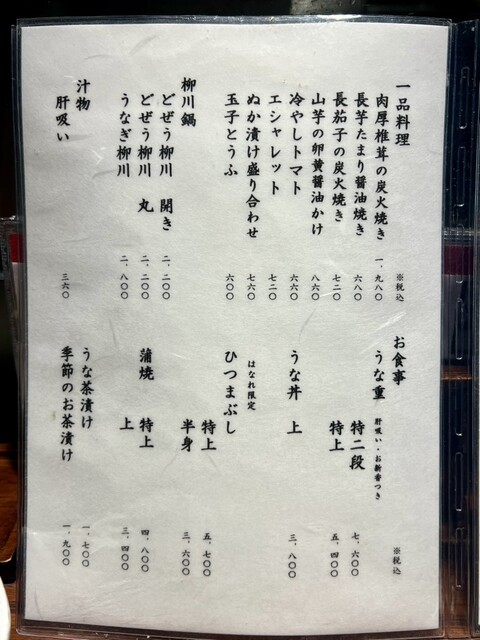 一品料理
※税込
肉厚椎茸の炭火焼き 一、九八〇
長芋たまり醤油焼き 六八〇
長茄子の炭火焼き 七二〇
山芋の卵黄醤油かけ 八六〇
冷やしトマト 六六〇
エシャレット 七二〇
ぬか漬け盛り合わせ 七六〇
玉子とうふ 六〇〇
柳川鍋
どぜう柳川 開き 二、二〇〇
どぜう柳川 丸 二、二〇〇
うなぎ柳川 二、八〇〇
汁物
肝吸い 三六〇
お食事
※税込
うな重 肝吸い・お新香つき
特二段 七、六〇〇
特上 五、四〇〇
うな丼 上 三、八〇〇
はなれ限定
ひつまぶし
特上 五、七〇〇
半身 三、六〇〇
蒲焼 特上 四、八〇〇
上 三、四〇〇
うな茶漬け 一、七〇〇
季節のお茶漬け 一、九〇〇